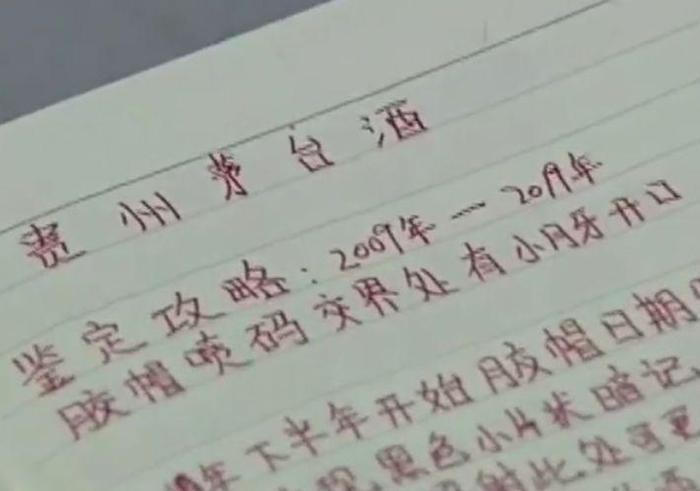 贵州茅台酒
鉴定攻略：2009年一2019年
胶帽喷码交界处有小月牙开口
年下半年开始胶帽日期
黑色小片状暗记
此处可更